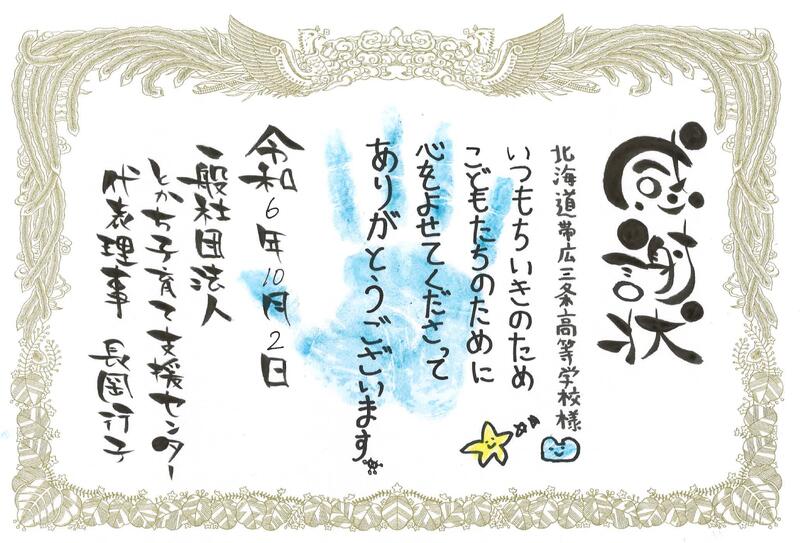 感謝状
北海道帯広三条高等学校様
いつもちいきのため
こどもたちのために
心をよせてくださって
ありがとうございます。
令和6年10月2日
一般社団法人
とかち子育て支援センター
代表理事 長岡行子